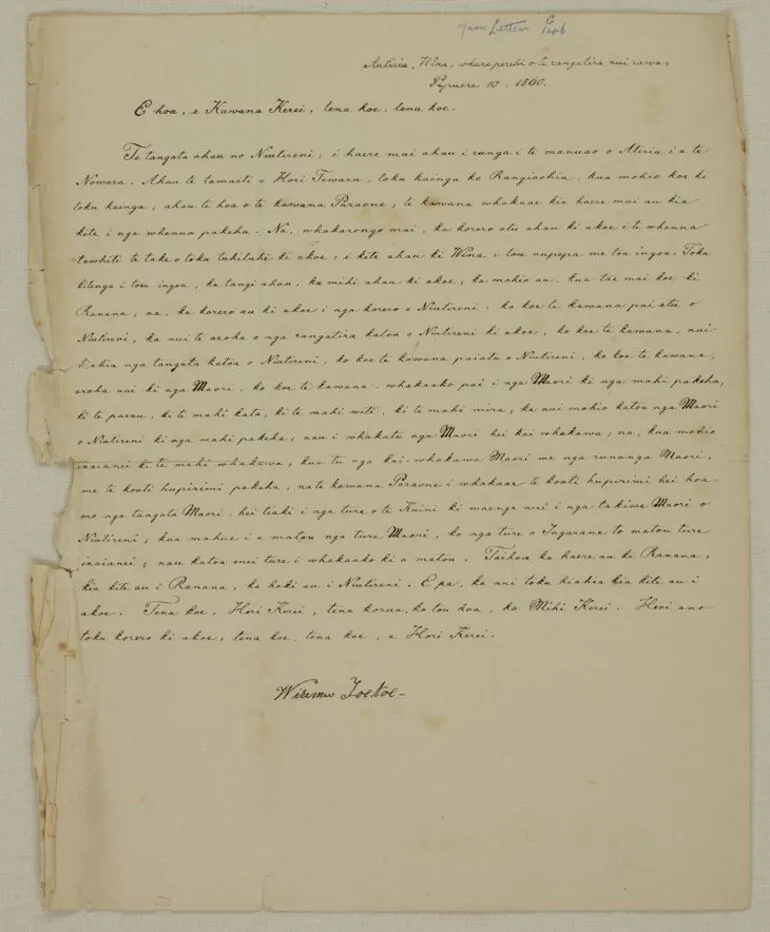 Maori Letters
Autiria, Wina, whare perehi o te rangatira nui rawa,
Pepuere 10 - 1860.
E hoa, e Kawana Kerei, tena koe, tena koe.
Te tangata ahau no Niutireni; i haere mai ahau i runga i te manuao o Atiria i a te
Nowara. Ahau te tamaiti o Hori Tewaru, toku kainga ko Rangiaohia, kua mohio koe ki
toku kainga; ahau te hoa o te kawana Paraone; te kawana whakaae kia haere mai au kia
kite i nga whenua pakeha. Na, whakarongo mai, ka korero atu ahau ki akoe i te whenua
tawhiti te take o toku tuhituhi ki akoe; i kite ahau ki Wina i tou nupepa me tou ingoa. Toku
kitenga i tou ingoa, ka tangi ahau, ka mihi ahau ki akoe, ka mohio au, kua tae mai koe ki
Ranana, na, ka korero au ki akoe i nga korero o Niutireni, ko koe te kawana pai atu o
Niutireni, ka nui te aroha o nga rangatira katoa o Niutireni ki akoe, ko koe te kawana, nui
hiahia nga tangata katoa o Niutireni, ko koe te kawana paiatu o Niutireni, ko koe te kawana,
aroha nui ki nga Maori, ko koe te kawana, whakaako pai i nga Maori ki nga mahi pakeha,
ki te parau, ki te mahi kata, ki te mahi witi, ki te mahi mira; ka nui mohio katoa nga Maori
o Niutireni ki nga mahi pakeha; nau i whakatu nga Maori hei kai whakawa; na, kua mohio
inaianei ki te mahi whakawa, kua tu nga kai-whakawa Maori me nga runanga Maori,
me te koati hupirimi pakeha, na te kawana Paraone i whakaae te koati hupirimi hei hoa
mo nga tangata Maori, hei tiaki i nga ture o te Kuini ki waenga nui i nga takiwa Maori o
Niutireni; kua mahue i a matou nga ture Maori, ko nga ture o Ingarane to matou ture
inaianei; nau katoa enei ture i whakaako ki a matou. Taihoa ka haere au ki Ranana,
kia kite au i Ranana, ka hoki au i Niutireni. E pa, ka nui toku hiahia kia kite au i
akoe. Tena koe, Hori Kerei, tena korua, ko tou hoa, ko Mihi Kerei. Heoi ano
toku korero ki akoe, tena koe, tena koe, e Hori Kerei.
Wiremu Toetoe -